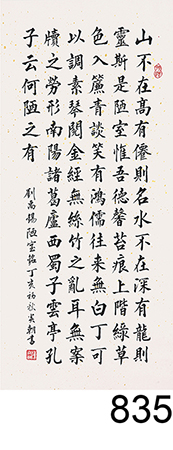 山不在高有僊則名水不在深有龍則
靈斯是陋室惟吾德馨苔痕上階綠草
色入簾青談笑有鴻儒往來無白丁可
以調素琴閱金經無絲竹之亂耳無案
牘之勞形南陽諸葛廬西蜀子雲亭孔
子云何陋之有
劉禹錫陋室銘丁亥初秋朝書
835